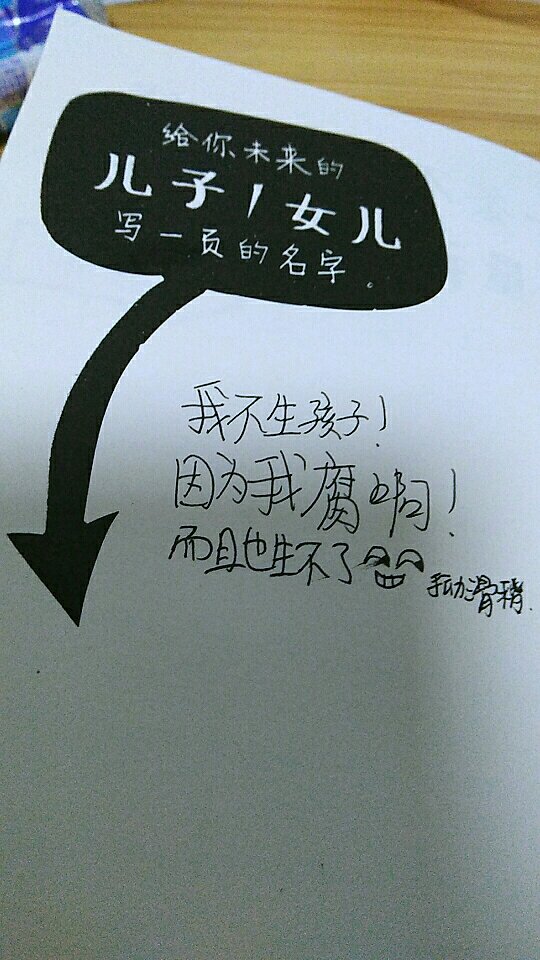 给你未来的
儿子/女儿
写一页的名字。
我不生孩子!
因为我腐啊!
而且也生不了 手动滑稽.